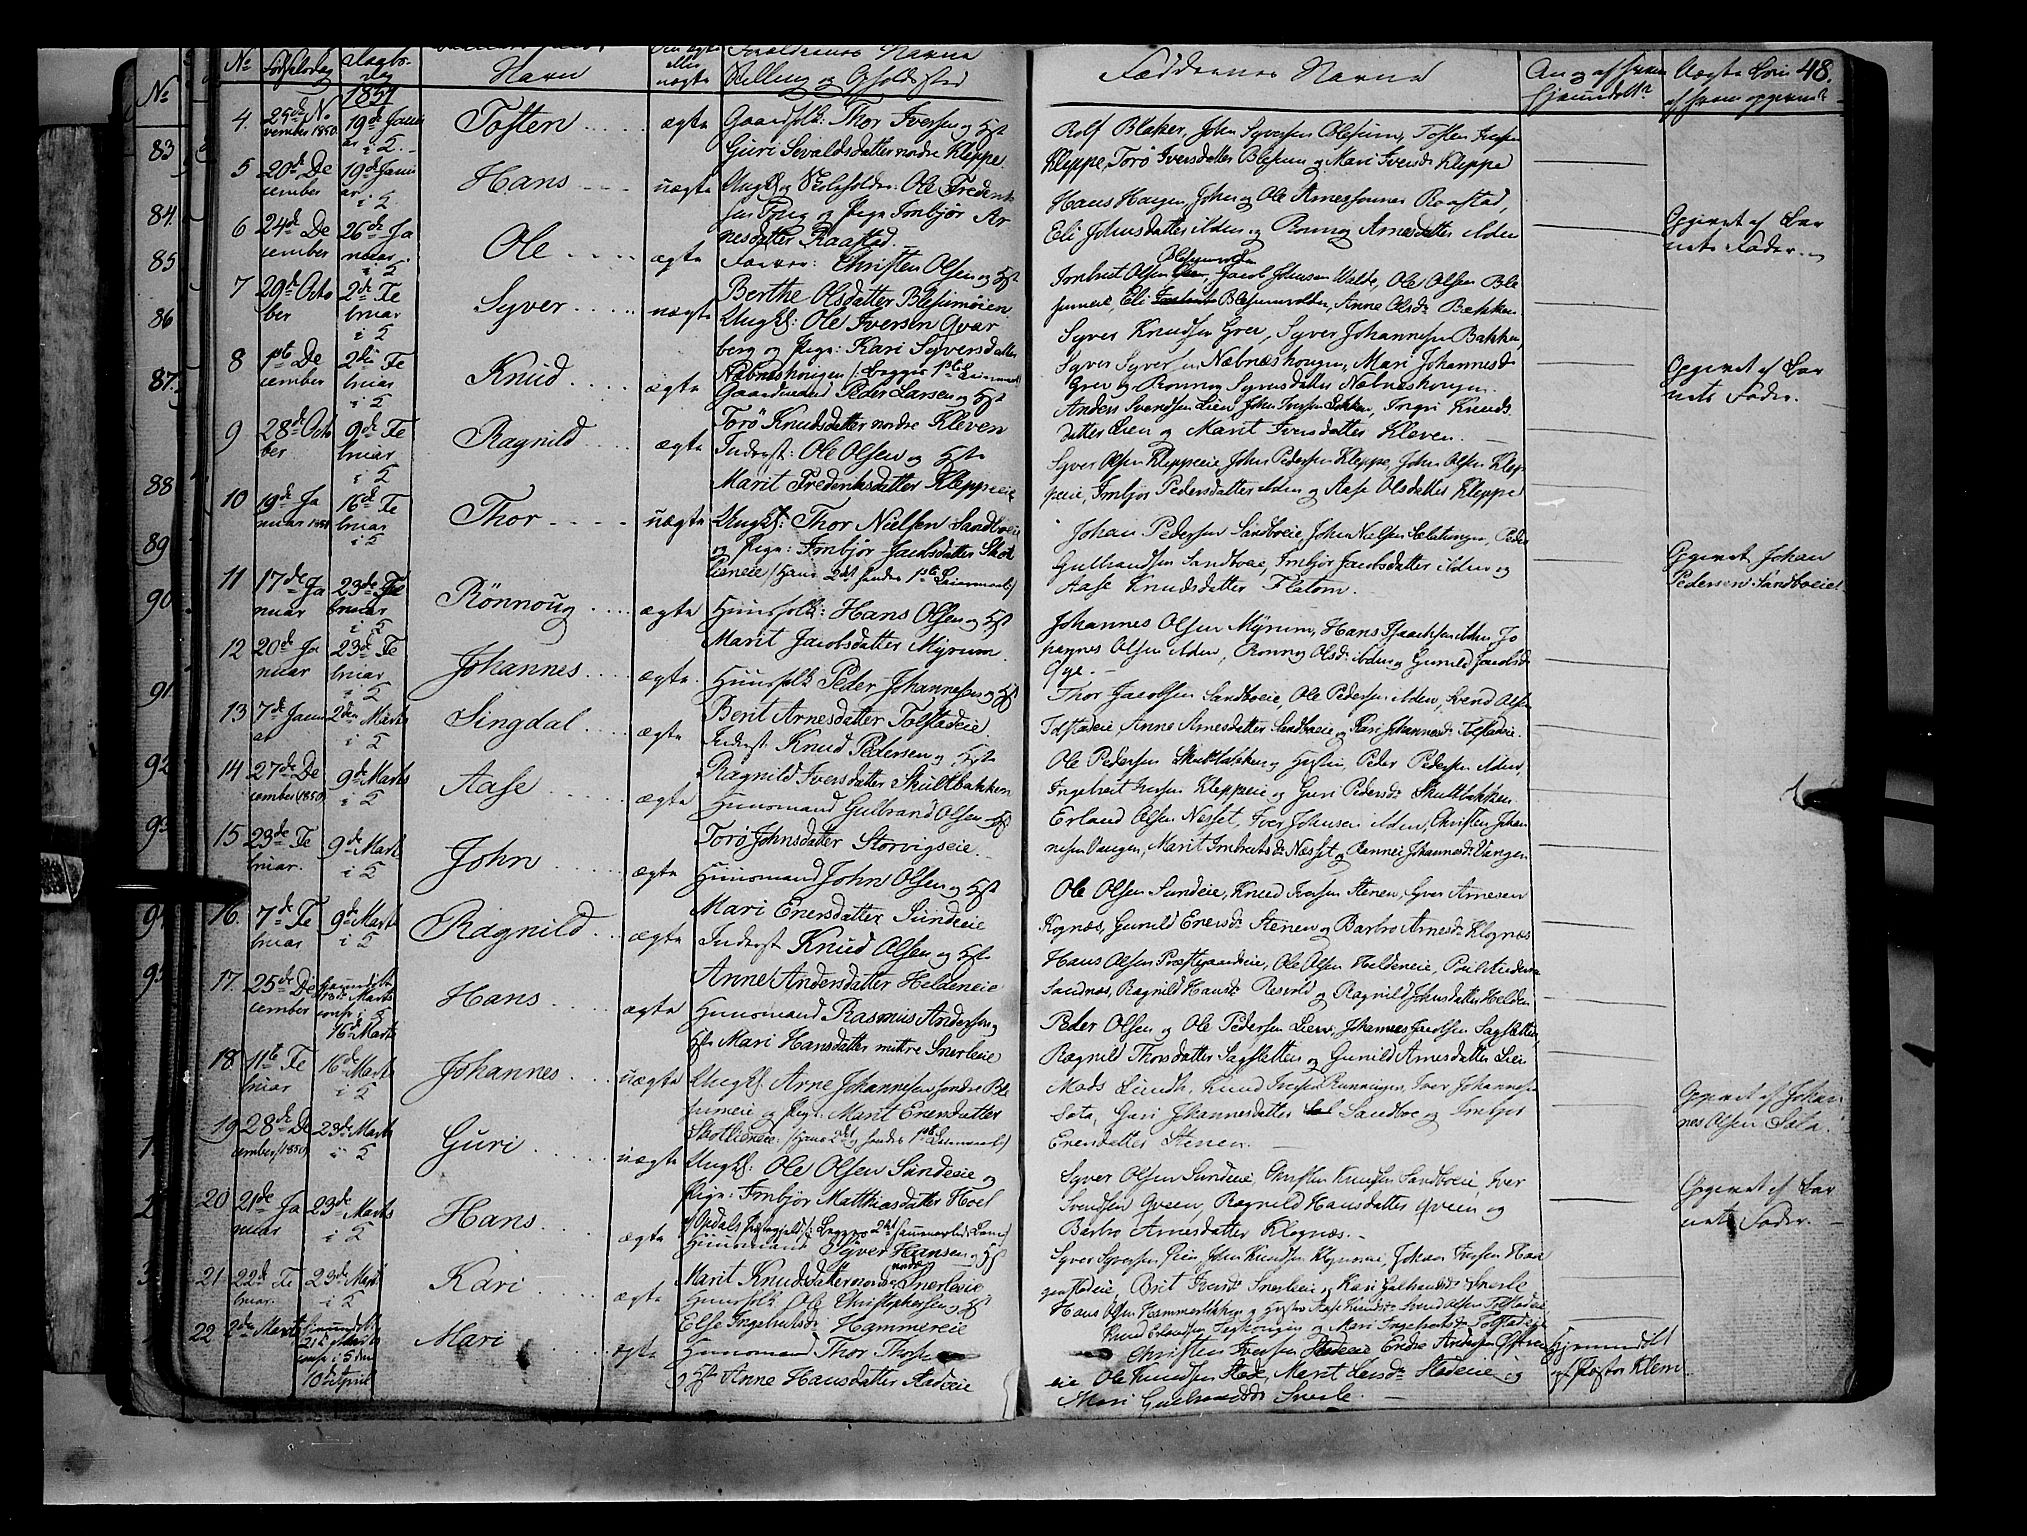 No
No Fødselsdag Daabsdag Navn Om ægte eller uægte Forældrenes Navne Stilling og Opholdsted
Faddernes Navne
48.
1851
4. 25de November 1850 19de Januar i K. Tosten ægte Gaardfolk: Thor Iversen og Hst
Guri Sevaldsdatter nordre Kleppe
Rolf Blaker, John Syversen Blessum, Tosten Iversen
Kleppe, Torø Iversdatter Blessum og Mari Iversdr Kleppe
83
5 20de December 19de Januar i K. Hans uægte Ungk og Skoleholder: Ole Frederik
sen og Pige Imbjør Ar
nesdatter Raastad
Hans Haugen, John og Ole Arnesønner Raastad,
Eli Johnsdatter ibden og Ronnog Arnesdatter ibden
Opgivet af Bar
nets Fader
84.
6 24de December 26de Januar i K Ole ægte Christen Olsen og Hst
Berthe Olsdatter Blesumøien
Imbret Olsen Blesumvolden, Jacob Johnsen Volde, Ole Olsen Ble
sumeie, Eli Blesumvolden, Anne Olsdr Bækken
85
7 29de October 2de Februar i K Syver uægte Ungk: Ole Iversen Qvar
berg og Pige: Kari Syversdatter
Næbneshougen /: begges 1ste Leiermaal
Syver Knudsen Grev, Syver Johannesen Bakken,
Syver Syversen Næbneshougen, Mari Johannesdr
Grev og Ronnog Syversdatter Næbneshougen.
Opgivet af Bar
nets Fader.
86
8 1ste December 2de Februar i K Knud ægte Gaardmand Peder Larsen og Hst
Torø Knudsdatter nordre Kleven
Anders Svendsen Lien, John Iversen Løkken, Ingri Knuds
datter Lien og Marit Iversdatter Kleven.
87
9 28de October 9de Februar i K Ragnild ægte Inderst: Ole Olsen og Hst
Marit Frederiksdatter Kleppeeie
Syver Olsen Kleppeeie, John Pedersen Kleppe, John Olsen Klep
peeie, Imbjør Pedersdatter ibden og Aase Olsdatter Kleppe
88
10 19de Januar 1851 16de Februar i K Thor uægte Ungk: Thor Nielsen Sandboeie
og Pige: Imbjør Jacobsdatter Skot
lieneie /: Hans 2det hendes 1ste Leiermaal/
Johan Pedersen Sandboeie, John Nielsen Sletungen, Peder
Gulbrandsen Sandboeie, Imbjør Jacobsdatter ibden og
Aase Knudsdatter Flatom.
Opgivet Johan
Pedersen Sandboeie
89
11 17de Januar 23de Februar i K Rønnoug ægte Huusfolk: Hans Olsen og Hst
Marit Jacobsdatter Myrum
Johannes Olsen Myrum, Hans Isaachsen ibden, Jo
hannes Olsen ibden, Ronnog Olsdr ibden og Gunild Jacobsdr
Øye.
90
12 20de Januar 23de Februar i K Johannes ægte Huusfolk Peder Johannesen og Hst
Berit Arnesdatter Tolstadeie
Thor Jacobsen Sandboeie, Ole Pedersen ibden, Svend Olsen
Tolstadeie Anne Arnesdatter Sandboeie og Kari Johannesdr Tolstadeie.
91
13 7de Januar 2den Marts i K Singdal ægte Inderst: Knud Pedersen og Hst
Ragnild Iversdatter Skultbakken
Ole Pedersen Skultbakken og Hustru, Peder Pedersen ibden,
Ingebret Iversen Kleppeie og Guri Pedersdr Skultbakken
92
14 27de December /1850/ 9de Marts i K Aase ægte Huusmand Gulbrand Olsen og Hst
Torø Johnsdatter Storvigseie
Erland Olsen Næsset, Iver Johnsen ibden, Christen Johan
nesen Vangen, Marit Imbretsdr Næsset og Rannei Johannesdr Vangen
93
15 23de Februar 9de Marts i K John ægte Huusmand John Olsen og Hst
Mari Enersdatter Sundeeie
Ole Olsen Sundeie, Knud Iversen Stenen, Syver Arnesen
Kognæs, Gunild Enersdr Stenen og Barbro Arnesdr Klognæs
94
16. 7de Februar 9de Marts i K Ragnild ægte Inderst Knud Olsen og Hst
Anne Andersdatter Heldeneie
Hans Olsen Præstegaardeie, Ole Olsen Heldeneie, Poul
Sandnæs, Ragnild Hansdr Resvold og Ragnild Johnsdatter Helden
95
17. 25de December 16de Marts Hans ægte Huusmand Rasmus Andersen og
Hst Mari Hansdatter mittre Snerleeie
Peder Olsen og Ole Pedersen Lien, Johannes Jacobsen Sagfletten
Ragnild Thorsdatter Sagfletten og Gunild Arnesdatter Lien
18. 11te Februar 16de Marts i K Johannes uægte Ungk. Arne Johannesen søndre Ble
sumeie og Pige: Marit Enersdatter
Skotlieneie: /Hans 2det og hendes 1ste Leiermaal/
Mads Lundh, Knud Iversen Rønningen, Iver Johannesen
Sata, Guri Johannesdatter Sandbo og Imbjør
Erensdatter Stenen.
Opgivet af Johan
nes Olsen Sata.
19 28de December /1850/ 23de Marts i K Guri uægte Ungk: Ole Olsen Sundeeie og
Pige: Imbjør Matthiasdatter Hoel
i Opdals Præstegjeld /: begges 2det
Syver Olsen Sundeie, Christen Knudsen Sandboeie, Iver
Svendsen Qveen, Ragnild Hansdatter Qveen og
Barbro Arnesdatter Klognæs.
Opgivet af Bar
nets Fader.
20 21de Januar 23de Marts i K Hans ægte Huusmand Syver Hansen og Hst
Marit Knudsdatter nordre Snerleeie
Syver Syversen, John Knudsen, Johan Iversen Hau
genstadeie, Brit Iversdr Snerleeie og Kari Gulbrandsdr Snerle
21 22de Februar. 23de Marts i K Kari ægte Huusfolk Ole Christophersen og Hst
Else Ingebretsdr Hammereie
Hans Olsen Hammerløkken og Hustru Aase Knudsdr, Svend Olsen Tolstadeie
Knud Erlandsen og Mari Ingebretsdr Tolstadeie
22 2den Marts 10de April Mari ægte Huusmand Thor Thor
og Hst Anne Hansdatter Stadeie
Christen Iversen Stadeie Endre Andersen
eie Ole Knudsen Stade, Marit Larsdr Stadeeie og
Mari Gulbrandsdr Snerle.
Hjemmedøbt
af Klem